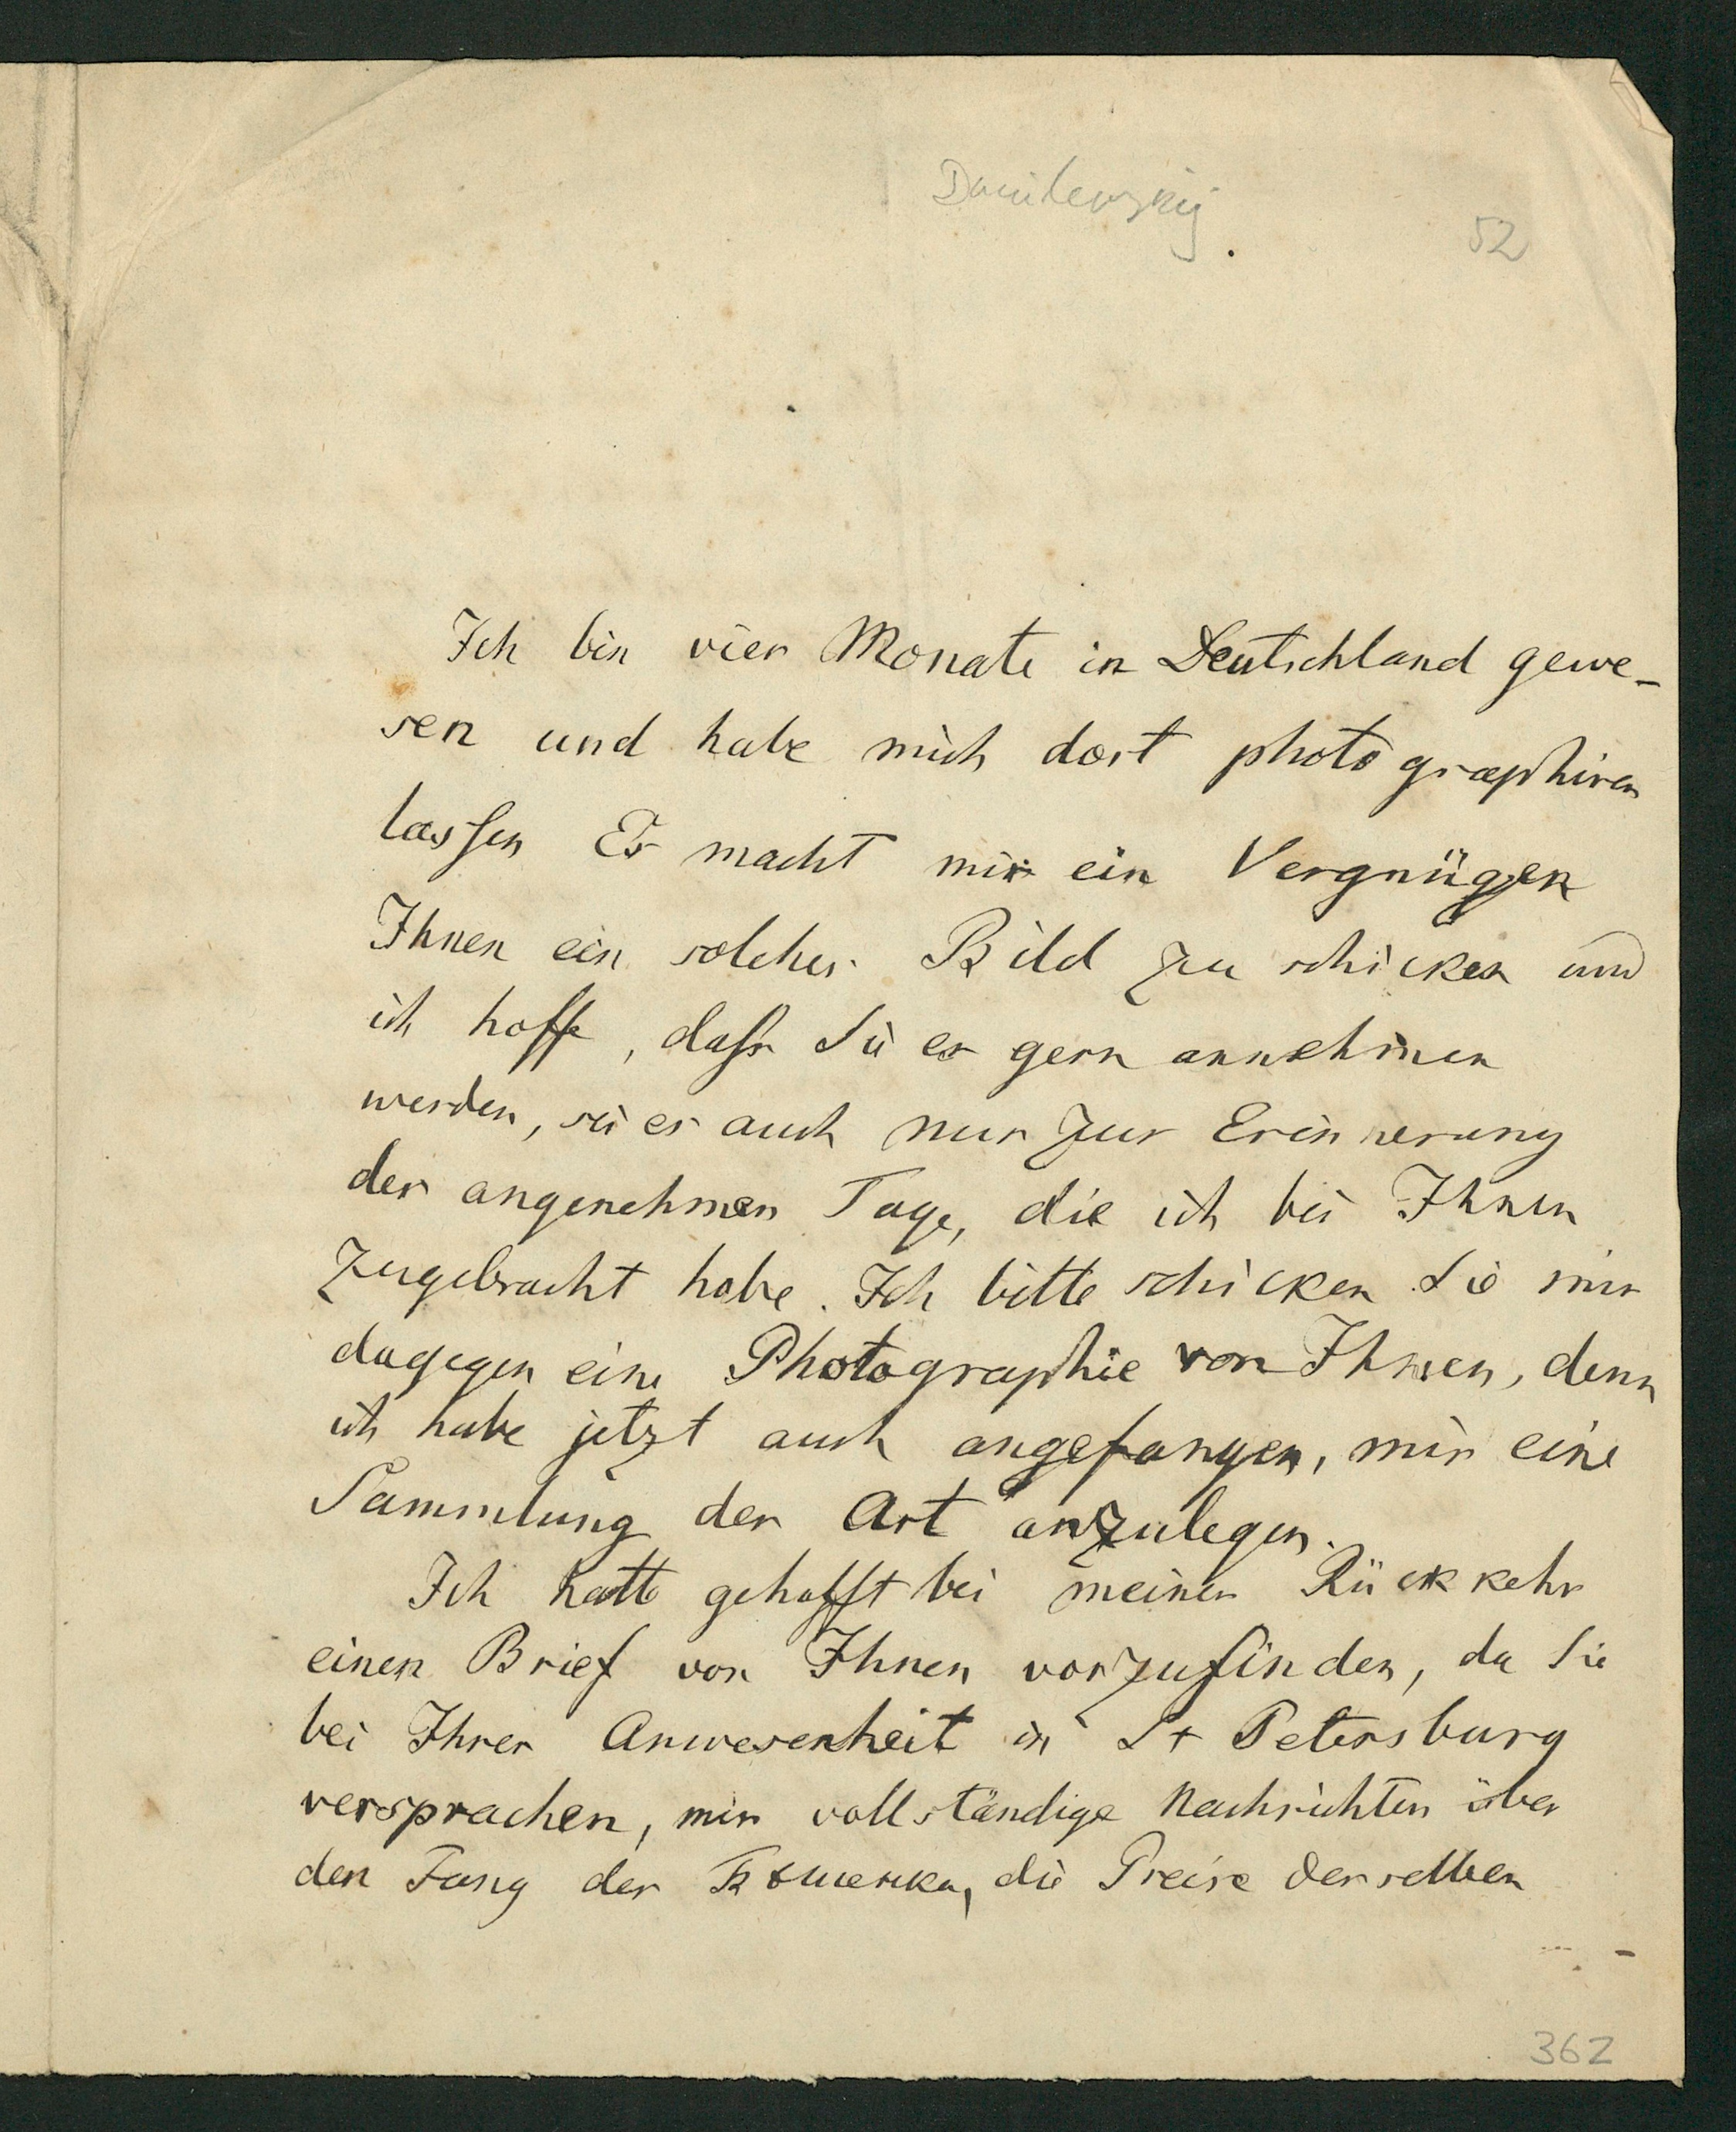 Danilewskij.
52
Ich bin vier Monate in Deutschland gewe-
sen und habe mich dort photographiren
lassen Es macht mir ein Vergnügen
Ihnen ein solches Bild zu schicken und
ich hoffe, dass Sie es gern annehmen
werden, sei es auch nur zur Erinnerung
der angenehmen Tage, die ich bei Ihnen
zugebracht habe. Ich bitte schicken Sie mir
dagegen eine Photographie von Ihnen, denn
ich habe jetzt auch angefangen, mir eine
Sammlung der Art anzulegen.
Ich hatte gehofft bei meiner Rückkehr
einen Brief von Ihnen vorzufinden, da Sie
bei Ihrer Anwesenheit in St Petersburg
versprachen, mir vollständige Nachrichten über
den Fang der die Preise derselben
362